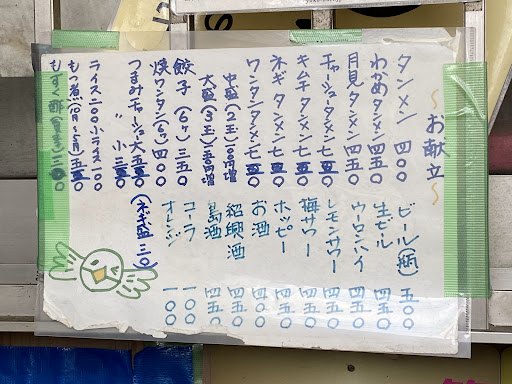 〜お献立〜
タンメン 四〇〇
わかめタンメン 四五〇
月見タンメン 四五〇
チャーシュータンメン 七五〇
キムチタンメン 七五〇
ネギタンメン 七五〇
ワンタンタンメン 七五〇
中盛(2玉)円増
大盛(3玉)円増
餃子(6ヶ)三五〇
焼ワンタン(6ヶ)四〇〇
つまみチャーシュー大 五五〇
〃 小 三五〇
(ネギ盛 三〇)
ライス二〇〇 小ライス一〇〇
もつ煮(10月〜5月)五五〇
もずく酢 三〇〇
ビール(瓶) 五〇〇
生ビール 四五〇
ウーロンハイ 四五〇
レモンサワー 四五〇
梅サワー 四五〇
ホッピー 四五〇
お酒 四〇〇
紹興酒 四五〇
島酒 四五〇
コーラ 一〇〇
オレンジ 一〇〇